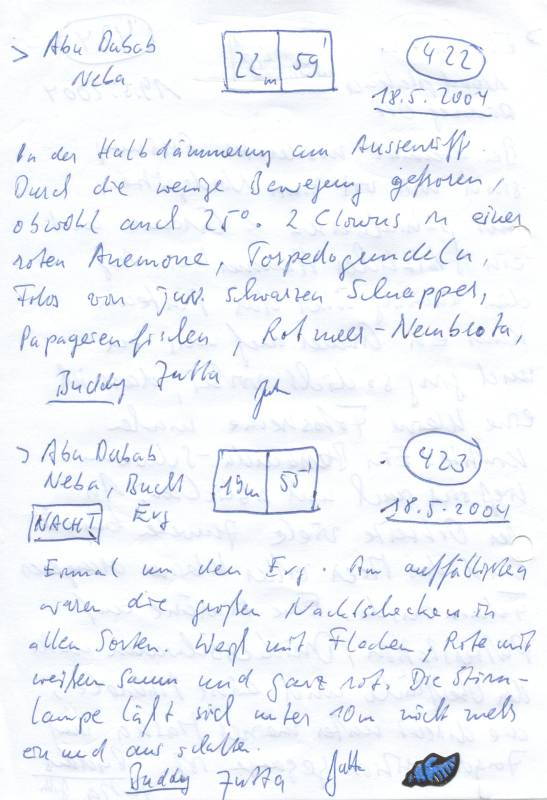 > Abu Dabab
Neba
22m 59'
422
18.5.2004
In der Halbdämmerung am Aussenriff.
Durch die wenige Bewegung gefroren,
obwohl auch 25°. 2 Clowns in einer
roten Anemone, Torpedogrundeln,
Fotos von juv. schwarzen Schnapper,
Papageienfischen, Rotmeer-Nembrota,
Buddy Jutta
> Abu Dabab
Neba, Bucht
NACHT Erg
19m 55'
423
18.5.2004
Einmal um den Erg. Am auffälligsten
waren die großen Nacktschecken in
allen Sorten. Weiß mit Flecken, Rote mit
weißen Saum und ganz rot. Die Stirn-
lampe läßt sich unter 10m nicht mehr
ein und aus schalten.
Buddy Jutta